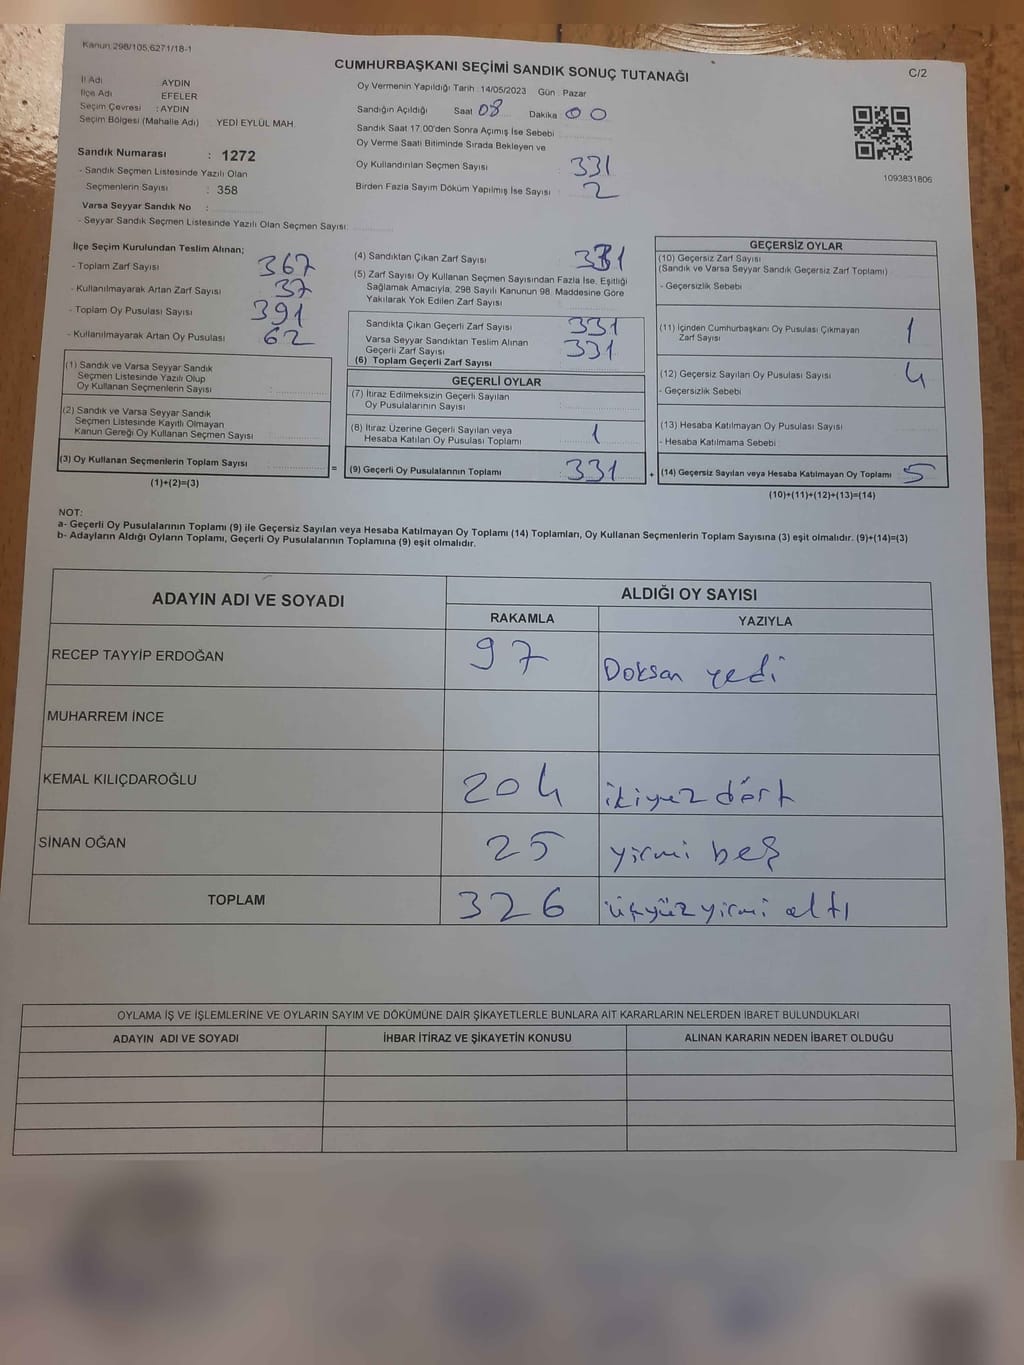 Kanun:298/105,6271/18-1
C/2
CUMHURBAŞKANI SEÇİMİ SANDIK SONUÇ TUTANAĞI
İl Adı AYDIN
İlçe Adı EFELER
Seçim Çevresi : AYDIN
Seçim Bölgesi (Mahalle Adı) YEDİ EYLÜL MAH.
Sandık Numarası : 1272
- Sandık Seçmen Listesinde Yazılı Olan
Seçmenlerin Sayısı : 358
Varsa Seyyar Sandık No :
- Seyyar Sandık Seçmen Listesinde Yazılı Olan Seçmen Sayısı:
Oy Vermenin Yapıldığı Tarih : 14/05/2023 Gün : Pazar
Sandığın Açıldığı Saat 08 Dakika 00
Sandık Saat 17.00'den Sonra Açımış İse Sebebi
Oy Verme Saati Bitiminde Sırada Bekleyen ve
Oy Kullandırılan Seçmen Sayısı 331
Birden Fazla Sayım Döküm Yapılmış İse Sayısı : 2
1093831806
İlçe Seçim Kurulundan Teslim Alınan;
- Toplam Zarf Sayısı 367
- Kullanılmayarak Artan Zarf Sayısı 37
- Toplam Oy Pusulası Sayısı 391
- Kullanılmayarak Artan Oy Pusulası 62
(1) Sandık ve Varsa Seyyar Sandık
Seçmen Listesinde Yazılı Olup
Oy Kullanan Seçmenlerin Sayısı :
(2) Sandık ve Varsa Seyyar Sandık
Seçmen Listesinde Kayıtlı Olmayan
Kanun Gereği Oy Kullanan Seçmen Sayısı
(3) Oy Kullanan Seçmenlerin Toplam Sayısı
(1)+(2)=(3)
=
(4) Sandıktan Çıkan Zarf Sayısı 331
(5) Zarf Sayısı Oy Kullanan Seçmen Sayısından Fazla İse, Eşitliği
Sağlamak Amacıyla, 298 Sayılı Kanunun 98. Maddesine Göre
Yakılarak Yok Edilen Zarf Sayısı
Sandıkta Çıkan Geçerli Zarf Sayısı 331
Varsa Seyyar Sandıktan Teslim Alınan
Geçerli Zarf Sayısı 331
(6) Toplam Geçerli Zarf Sayısı
GEÇERLİ OYLAR
(7) İtiraz Edilmeksizin Geçerli Sayılan
Oy Pusulalarının Sayısı
(8) İtiraz Üzerine Geçerli Sayılan veya
Hesaba Katılan Oy Pusulası Toplamı 1
(9) Geçerli Oy Pusulalarının Toplamı : 331
+
GEÇERSİZ OYLAR
(10) Geçersiz Zarf Sayısı
(Sandık ve Varsa Seyyar Sandık Geçersiz Zarf Toplamı)
- Geçersizlik Sebebi
(11) İçinden Cumhurbaşkanı Oy Pusulası Çıkmayan
Zarf Sayısı 1
(12) Geçersiz Sayılan Oy Pusulası Sayısı 4
- Geçersizlik Sebebi
(13) Hesaba Katılmayan Oy Pusulası Sayısı
- Hesaba Katılmama Sebebi
(14) Geçersiz Sayılan veya Hesaba Katılmayan Oy Toplamı 5
(10)+(11)+(12)+(13)=(14)
NOT:
a- Geçerli Oy Pusulalarının Toplamı (9) ile Geçersiz Sayılan veya Hesaba Katılmayan Oy Toplamı (14) Toplamları, Oy Kullanan Seçmenlerin Toplam Sayısına (3) eşit olmalıdır. (9)+(14)=(3)
b- Adayların Aldığı Oyların Toplamı, Geçerli Oy Pusulalarının Toplamına (9) eşit olmalıdır.
ADAYIN ADI VE SOYADI ALDIĞI OY SAYISI
RAKAMLA YAZIYLA
RECEP TAYYİP ERDOĞAN 97 Doksan yedi
MUHARREM İNCE
KEMAL KILIÇDAROĞLU 204 ikiyüz dört
SİNAN OĞAN 25 yirmi beş
TOPLAM 326 üçyüz yirmi altı
OYLAMA İŞ VE İŞLEMLERİNE VE OYLARIN SAYIM VE DÖKÜMÜNE DAİR ŞİKAYETLERLE BUNLARA AİT KARARLARIN NELERDEN İBARET BULUNDUKLARI
ADAYIN ADI VE SOYADI İHBAR İTİRAZ VE ŞİKAYETİN KONUSU ALINAN KARARIN NEDEN İBARET OLDUĞU